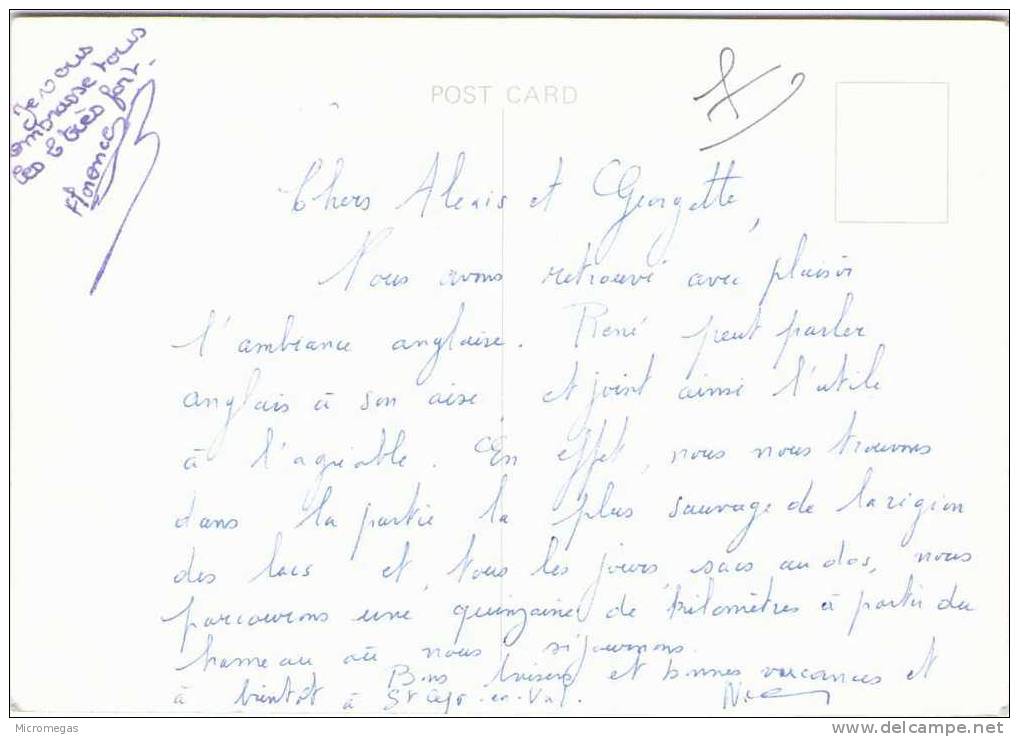 Je vous
embrasse tous
les 6 très fort.
Florence
POST CARD
Chers Alexis et Georgette,
Nous avons retrouvé avec plaisir
l'ambiance anglaise. René peut parler
anglais à son aise et joint ainsi l'utile
à l'agréable. En effet, nous nous trouvons
dans la partie la plus sauvage de la région
des lacs et, tous les jours, sacs au dos, nous
parcourons une quinzaine de kilomètres à partir du
hameau où nous séjournons.
Bons baisers et bonnes vacances et
à bientôt à St -en-Val.
Micromegas
www.delcampe.net